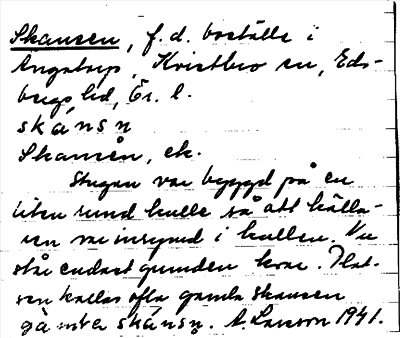 Skansen, f.d. boställe i
Ängstorp, Kvistbro sn, Eds-
bergs hd, Ör. l.
skánsn
Skansen, ek.
Stugan var byggd på en
liten rund kulle så att källa-
ren var insynad i kullen. Nu
står endast grunden kvar. Plat-
sen kallas ofta gamla Skansen
gàmla skánsn. A. Larsson 1941.